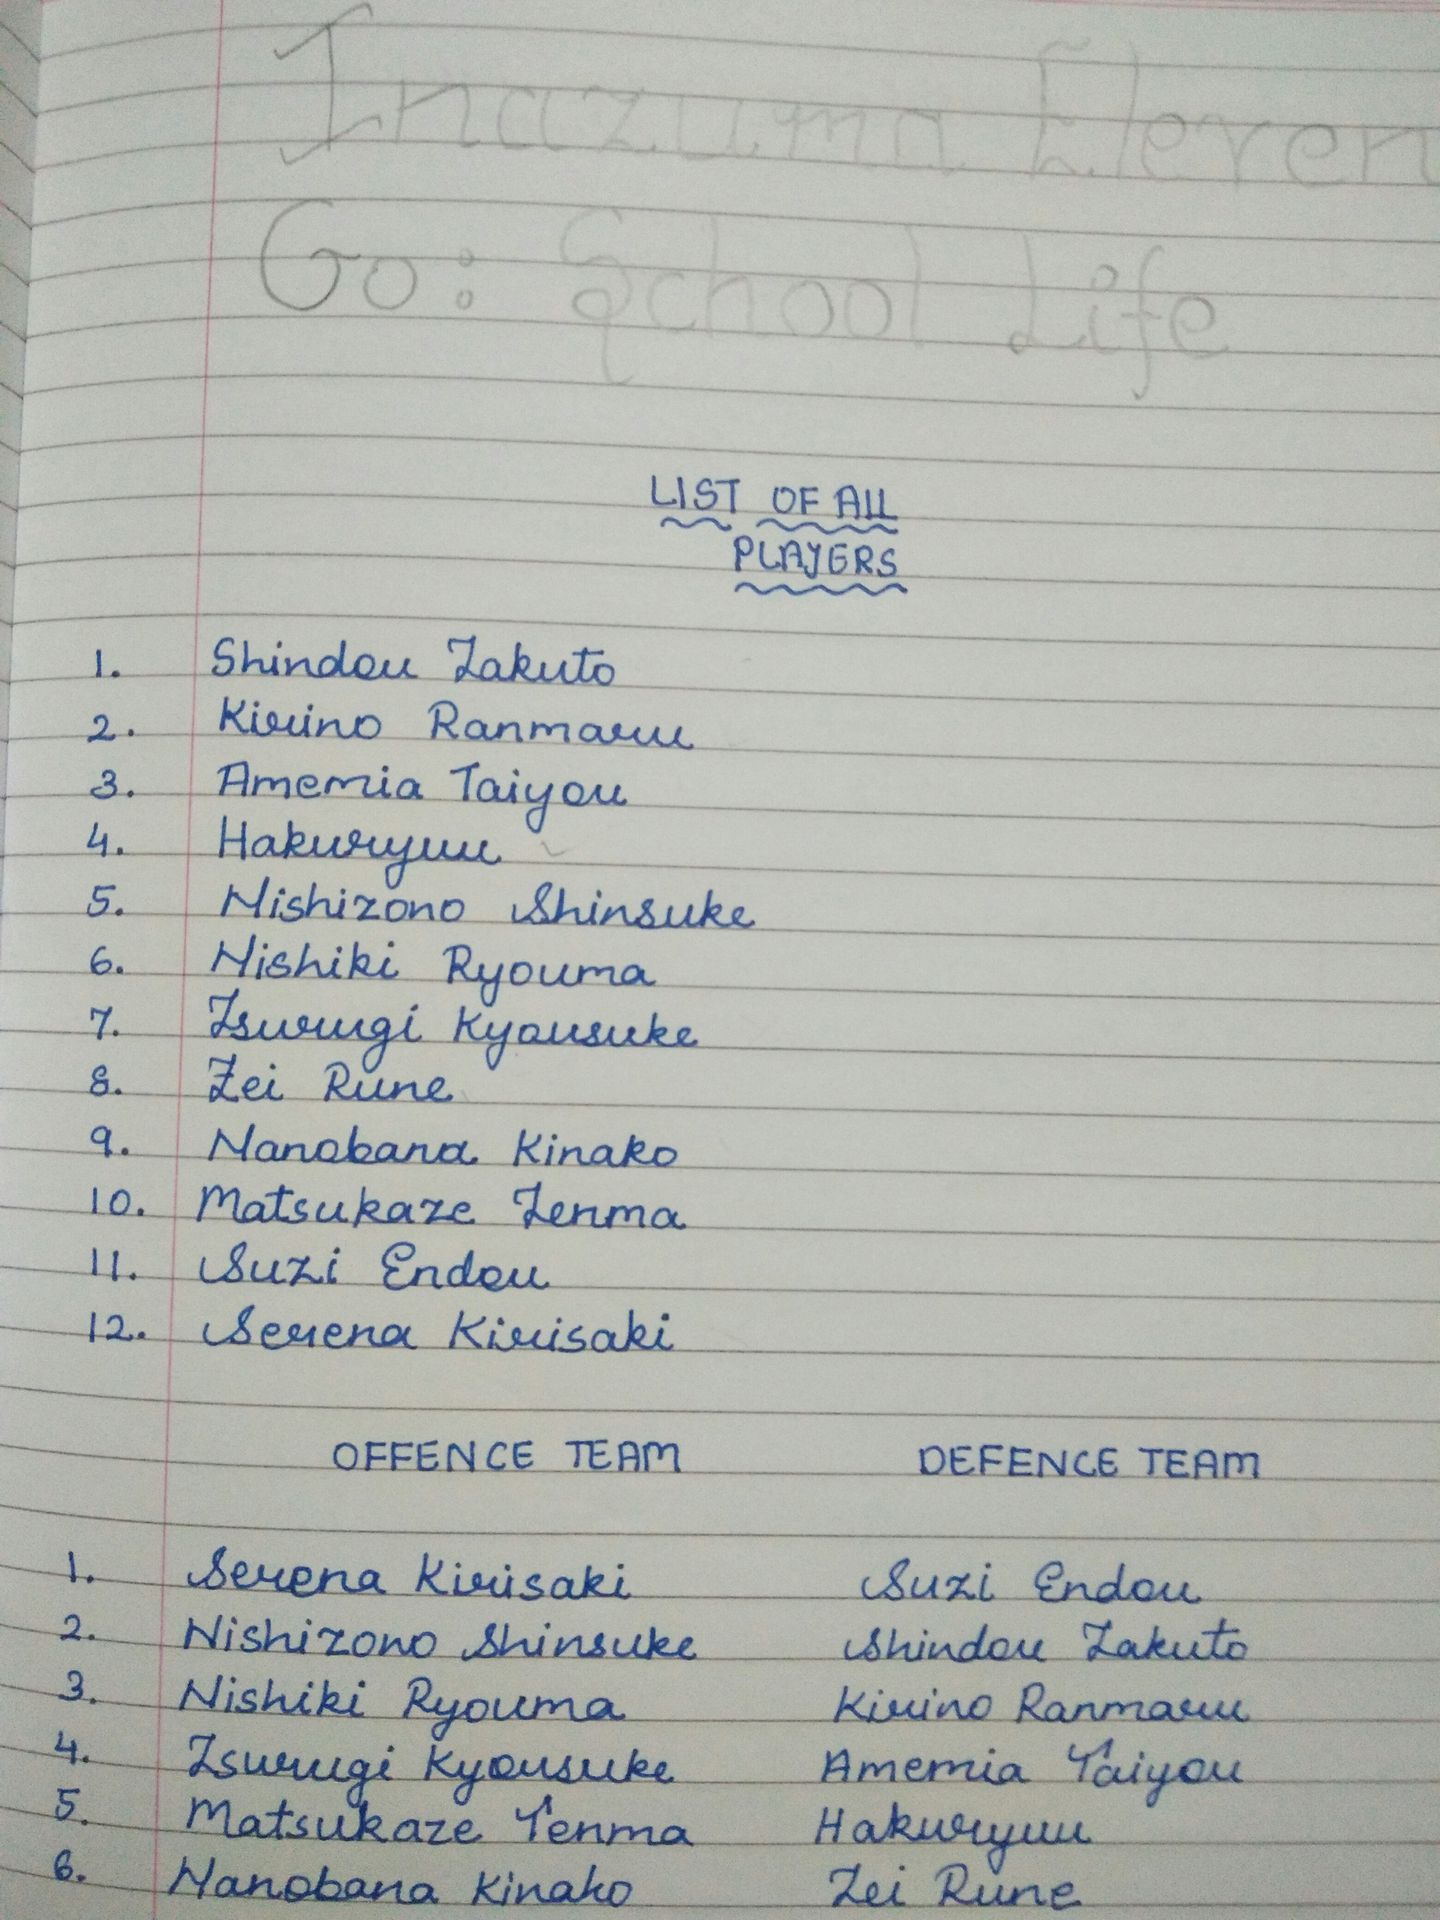 Inazuma Eleven
Go: School Life
LIST OF ALL
PLAYERS
1. Shindou Takuto
2. Kirino Ranmaru
3. Amemia Taiyou
4. Hakuryuu
5. Nishizono Shinsuke
6. Nishiki Ryouma
7. Tsurugi Kyousuke
8. Zei Rune
9. Nanobana Kinako
10. Matsukaze Tenma
11. Suzi Endou
12. Serena Kirisaki
OFFENCE TEAM DEFENCE TEAM
1. Serena Kirisaki Suzi Endou
2. Nishizono Shinsuke Shindou Takuto
3. Nishiki Ryouma Kirino Ranmaru
4. Tsurugi Kyousuke Amemia Taiyou
5. Matsukaze Tenma Hakuryuu
6. Nanobana Kinako Zei Rune